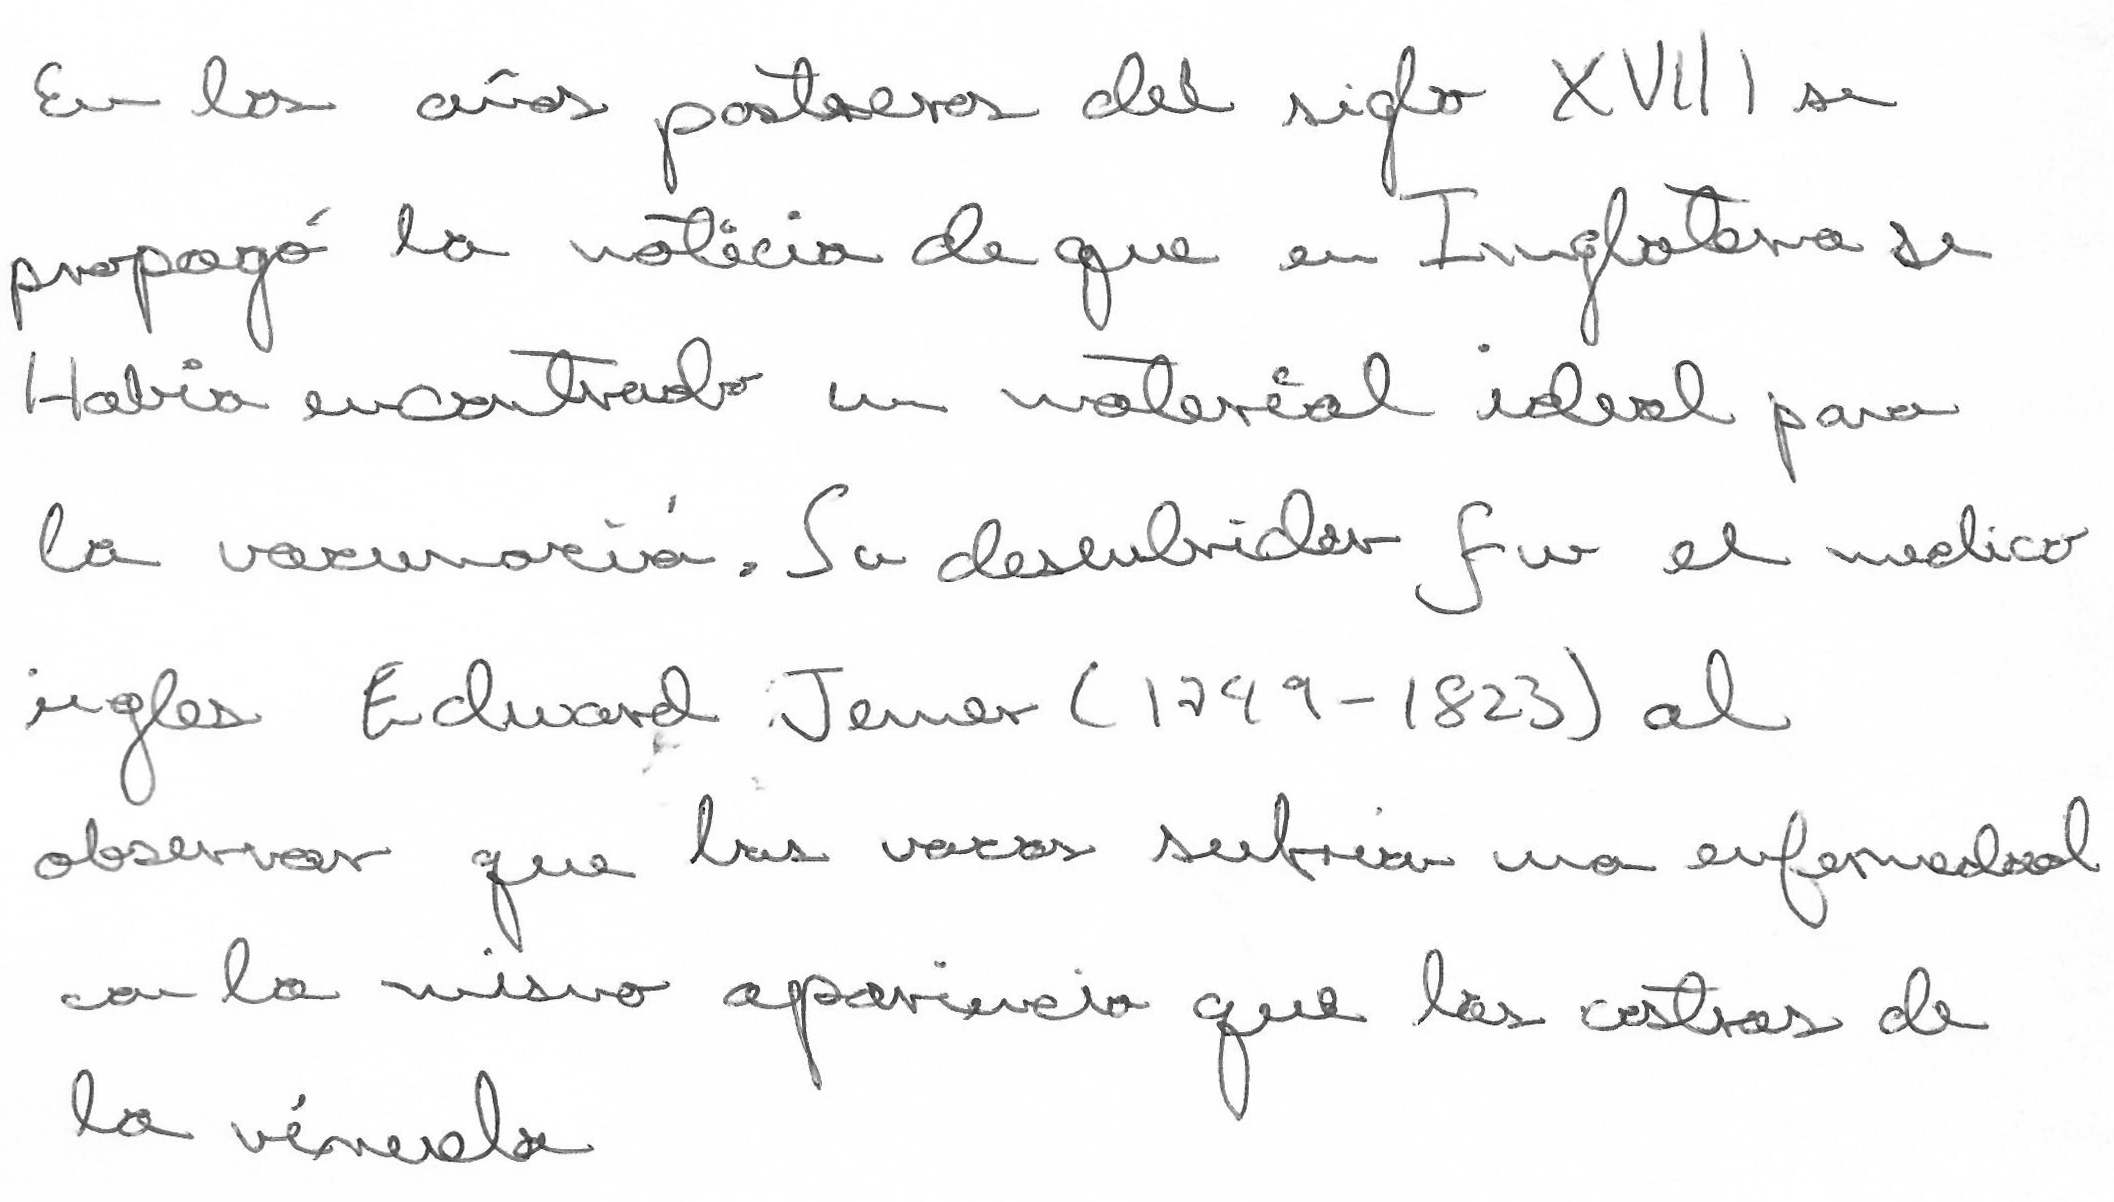 En los años postreros del siglo XVIII se
propagó la noticia de que en Inglaterra se
Había encontrado un material ideal para
la vacunació. Su descubridor fue el medico
ingles Edward Jenner (1749-1823) al
observar que las vacas sufrian una enfermedad
con la misma apariencia que las costras de
la viruela